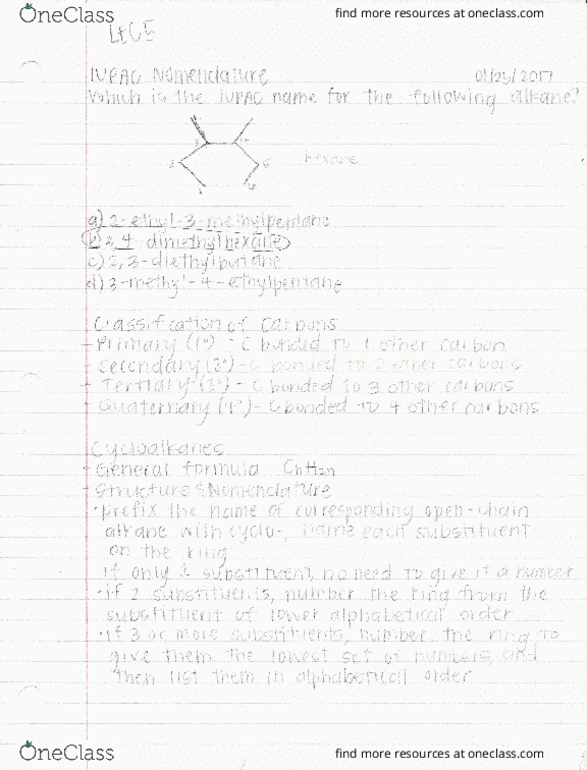 OneClass
find more resources at oneclass.com
LEC 5
IUPAC Nomenclature 01/25/2017
Which is the IUPAC name for the following alkane?
hexane
a) 2-ethyl-3-methylpentane
b) 3,4-dimethylhexane
c) 2,3-diethylbutane
d) 3-methyl-4-ethylpentane
Classification of Carbons
- Primary (1°) - C bonded to 1 other carbon
- Secondary (2°) - C bonded to 2 other carbons
- Tertiary (3°) - C bonded to 3 other carbons
- Quaternary (4°) - C bonded to 4 other carbons
Cycloalkanes
- General formula CnH2n
- Structure & Nomenclature
· prefix the name of corresponding open-chain
alkane with cyclo-, name each substituent
on the ring
· if only 1 substituent, no need to give it a number
· if 2 substituents, number the ring from the
substituent of lower alphabetical order
· if 3 or more substituents, number the ring to
give them the lowest set of numbers, and
then list them in alphabetical order
OneClass
find more resources at oneclass.com